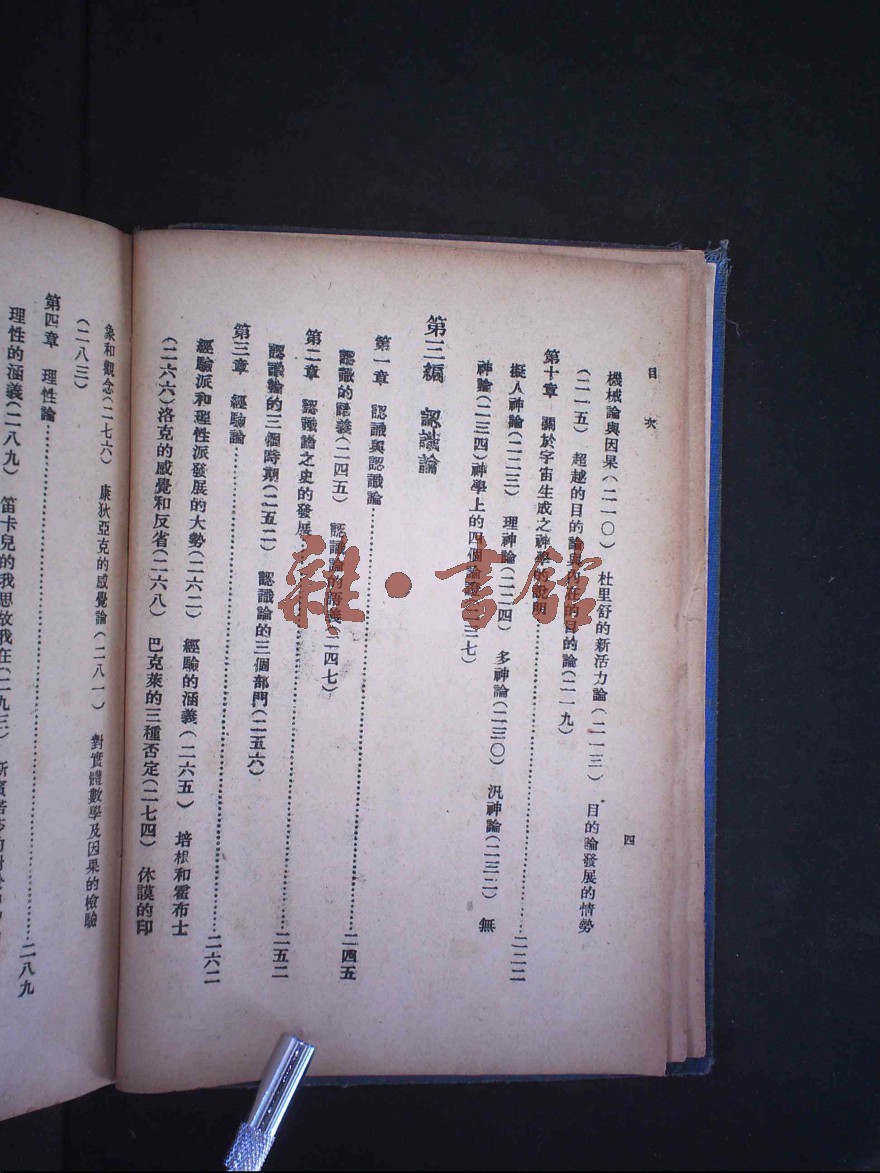 目次
四
機械論與因果(二一〇) 杜里舒的新活力論(二一三) 目的論發展的情勢
(二一五) 超越的目的論與內在的目的論(二一九)
第十章 關於宇宙生成之神學的說明……二二二
擬人神論(二二三) 理神論(二二四) 多神論(二三〇) 汎神論(二三二) 無
神論(二三四)神學上的四個論證(二三七)
第三編 認識論
第一章 認識與認識論……二四五
認識的語義(二四五) 認識論的語義(二四七)
第二章 認識論之史的發展……二五二
認識論的三個時期(二五二) 認識論的三個部門(二五六)
第三章 經驗論……二六二
經驗派和理性派發展的大勢(二六二) 經驗的涵義(二六五) 培根和霍布士
(二六六)洛克的感覺和反省(二六八) 巴克萊的三種否定(二七四) 休謨的印
象和觀念(二七六) 康狄亞克的感覺論(二八一) 對實體數學及因果的檢驗
(二八三)
第四章 理性論……二八九
理性的涵義(二八九) 笛卡兒的我思故我在(二九三)
雜·書館